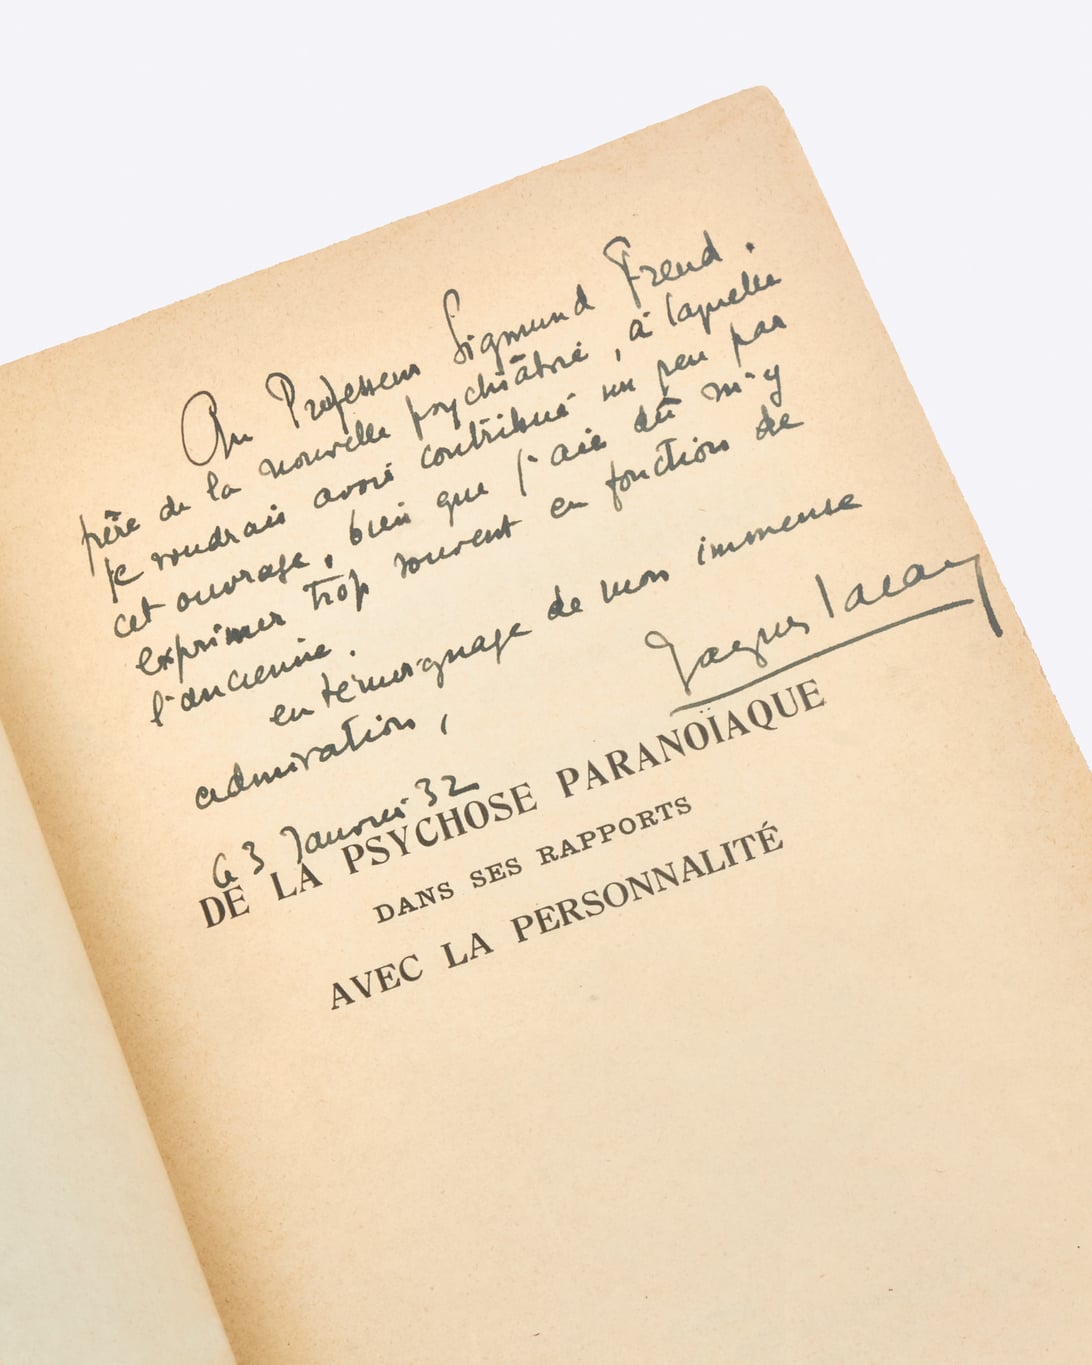 Au Professeur Sigmund Freud.
père de la nouvelle psychiâtrie, à laquelle
je voudrais avoir contribué un peu par
cet ouvrage, bien que j'aie dû m'y
exprimer trop souvent en fonction de
l'ancienne.
en témoignage de mon immense
admiration,
Jacques Lacan
le 3 Janvier 32
DE LA PSYCHOSE PARANOÏAQUE
DANS SES RAPPORTS
AVEC LA PERSONNALITÉ